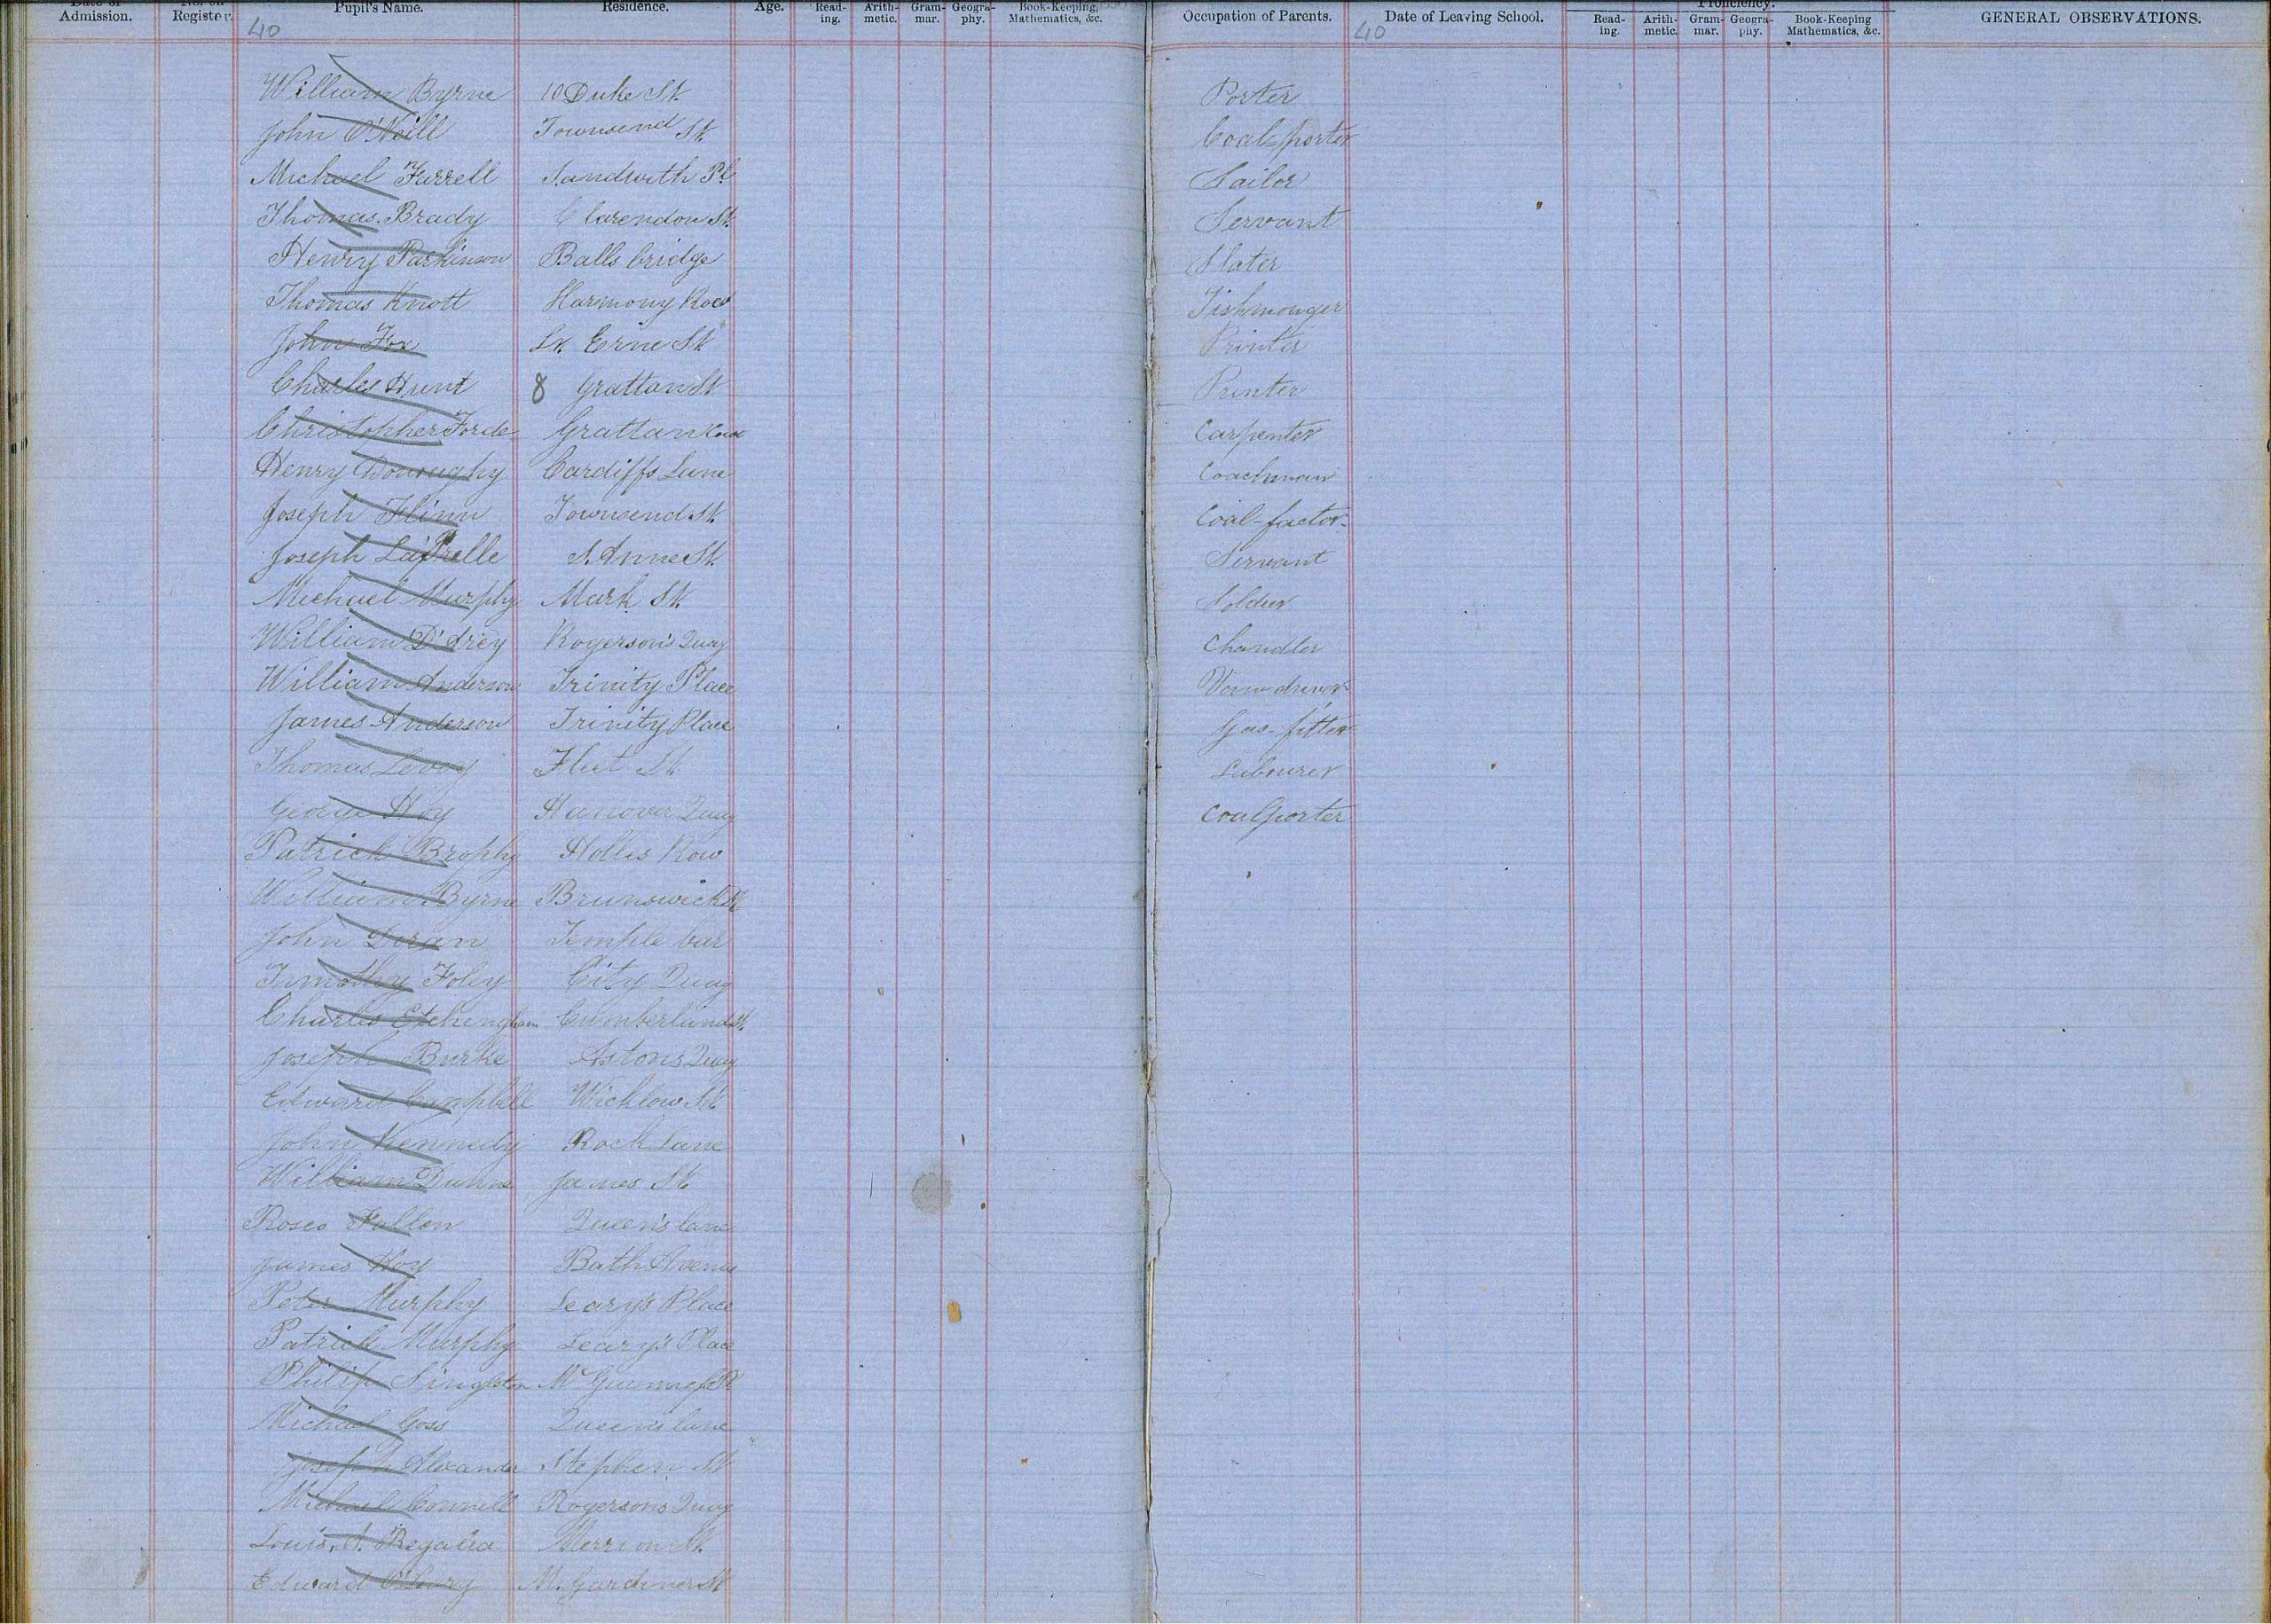 Date of Admission. No. on Register. Pupil's Name. Residence. Age. Read-ing. Arith-metic. Gram-mar. Geogra-phy. Book-Keeping, Mathematics, &c. Occupation of Parents. Date of Leaving School. Proficiency. Read-ing. Arith-metic. Gram-mar. Geogra-phy. Book-Keeping Mathematics, &c. GENERAL OBSERVATIONS.
40 40
William Byrne 10 Duke St. Porter
John O'Neill Townsend St. Coal-porter
Michael Farrell Sandwith Pl. Sailor
Thomas Brady Clarendon St. Servant
Henry Parkinson Balls bridge Slater
Thomas Knott Harmony Row Fishmonger
John Fox Lr. Erne St. Printer
Charles Hunt 8 Grattan St Printer
Christopher Forde Grattan Court Carpenter
Henry Cardiffs Lane Coachman
Joseph Flinn Townsend St. Coal-factor
Joseph S. Anne St. Servant
Michael Murphy Mark St. Soldier
William Rogerson's Quay Chandler
William Anderson Trinity Place Van driver
James Anderson Trinity Place Gas-fitter
Thomas Fleet St. Labourer
George Hoy Hanover Quay Coalporter
Patrick Brophy Holles Row
William Byrne Brunswick St
John Doran Temple bar
Timothy Foley City Quay
Charles Etchingham Cumberland St.
Joseph Burke Astons Quay
Edward Campbell Wicklow St.
John Kennedy Rock Lane
William Dunne James St.
Fallon Queen's lane
James Hoy Bath Avenue
Peter Murphy Leary's Place
Patrick Murphy Leary's Place
Philip Singleton
Michael Goss Queens lane
Joseph Alexander Stephen St
Michael Connell Rogersons Quay
Louis A. Regalia Merrion St.
Edward O'Leary M. Gardiner St